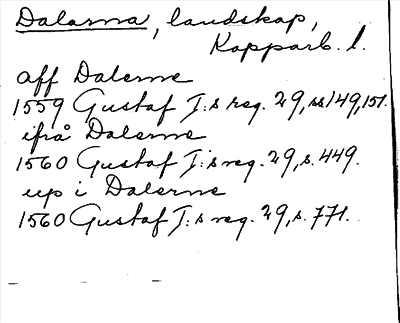 Dalarna, landskap,
Kopparb. l.
aff Dalerne
1559 Gustaf I:s reg. 29, ss 149, 151.
ifrå Dalerne
1560 Gustaf I:s reg. 29, s. 449.
up i Dalerne
1560 Gustaf I:s reg. 29, s. 771.